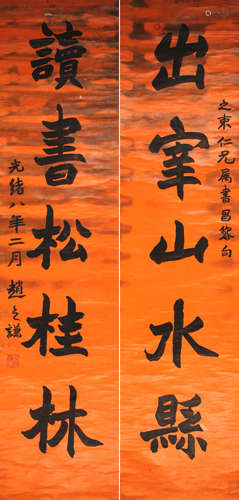 之東仁兄属書昌黎句
出宰山水縣
讀書松桂林
光緒八年二月 趙之謙